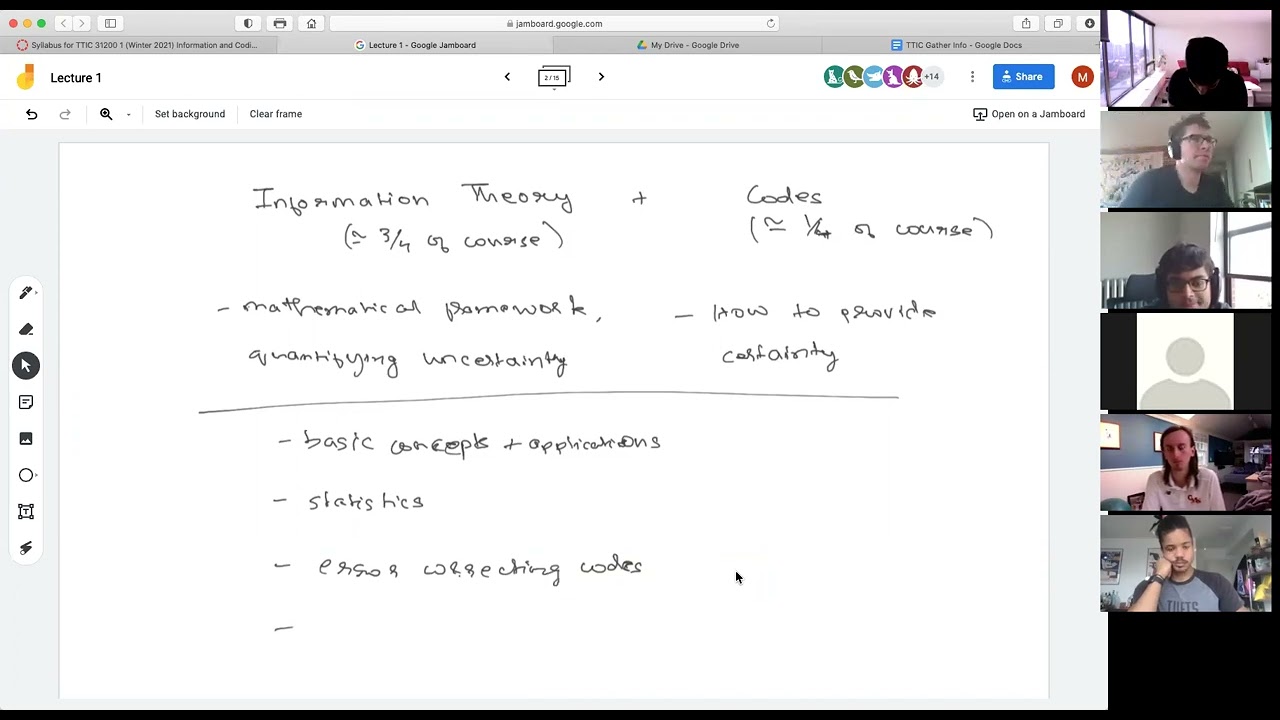 jamboard.google.com
Syllabus for TTIC 31200 1 (Winter 2021) Information and Codi...
Lecture 1 - Google Jamboard
My Drive - Google Drive
TTIC Gather Info - Google Docs
Lecture 1
2/15
+14
Share
M
Set background
Clear frame
Open on a Jamboard
Information Theory + Codes
(≅ 3/4 of course) (≅ 1/4 of course)
- mathematical framework, - How to provide
quantifying uncertainty certainty
- basic concepts + applications
- statistics
- error correcting codes
-
TUFTS